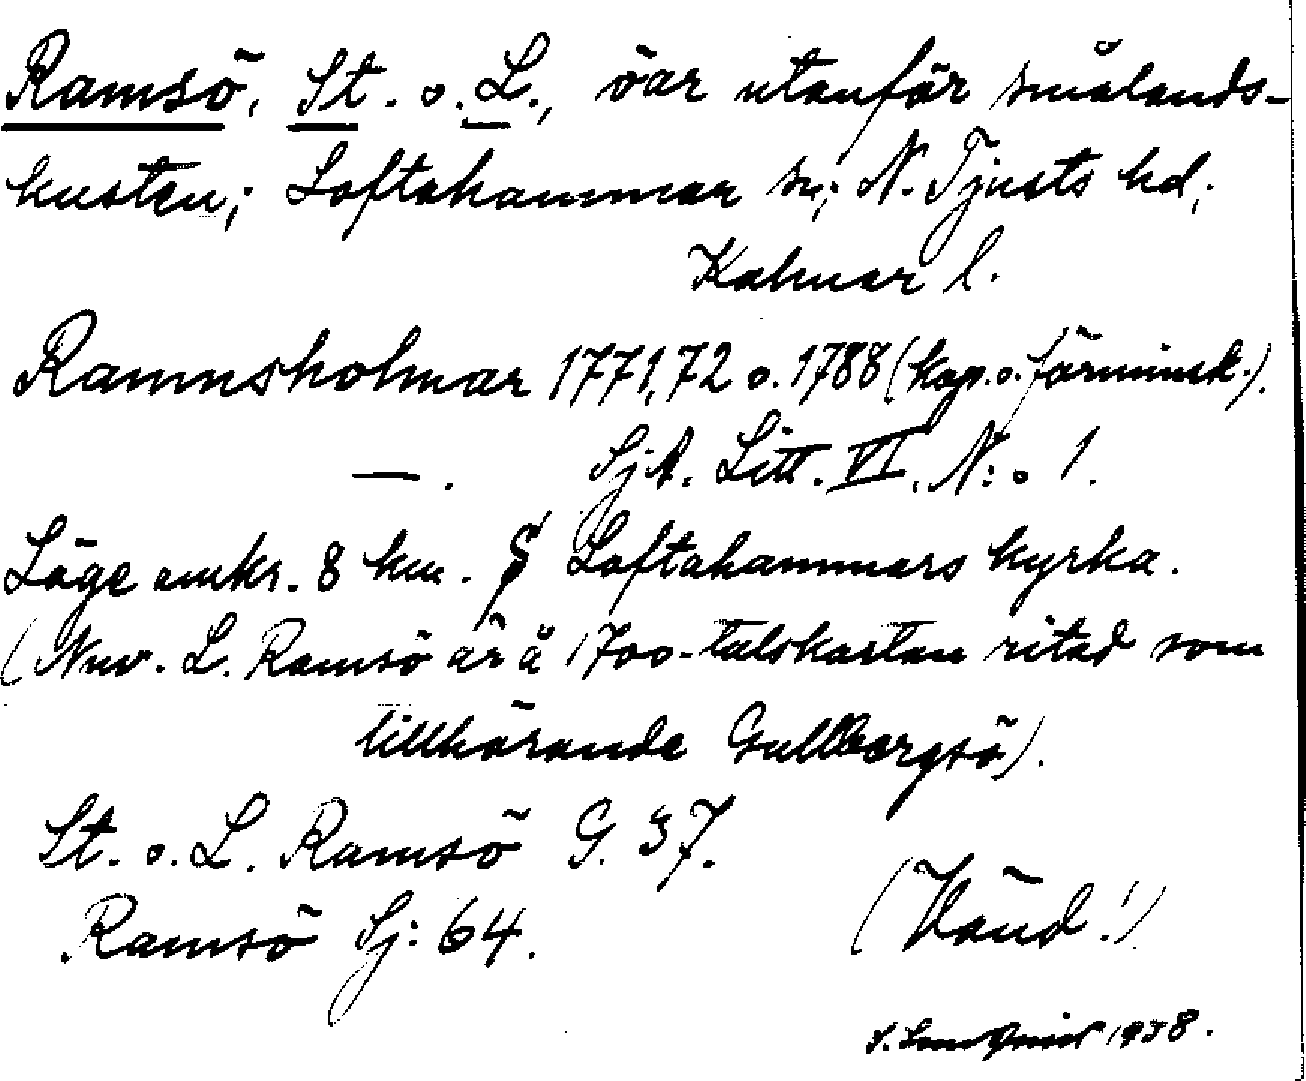 Ramsö, St. o. L., öar utanför smålands-
kusten; Loftahammar sn; N. Tjusts hd;
Kalmar l.
Ramnsholmar 1771, 72 o. 1788 (kop. o. förminsk.).
—. SjA. Litt. VI. N:o 1.
Läge omkr. 8 km. S Loftahammars kyrka.
(Nuv. L. Ramsö är å 1700-talskartan ritad som
tillhörande Gullbergsö).
St. o. L. Ramsö G. 37.
Ramsö Sj: 64.
(Vänd!)
1938.